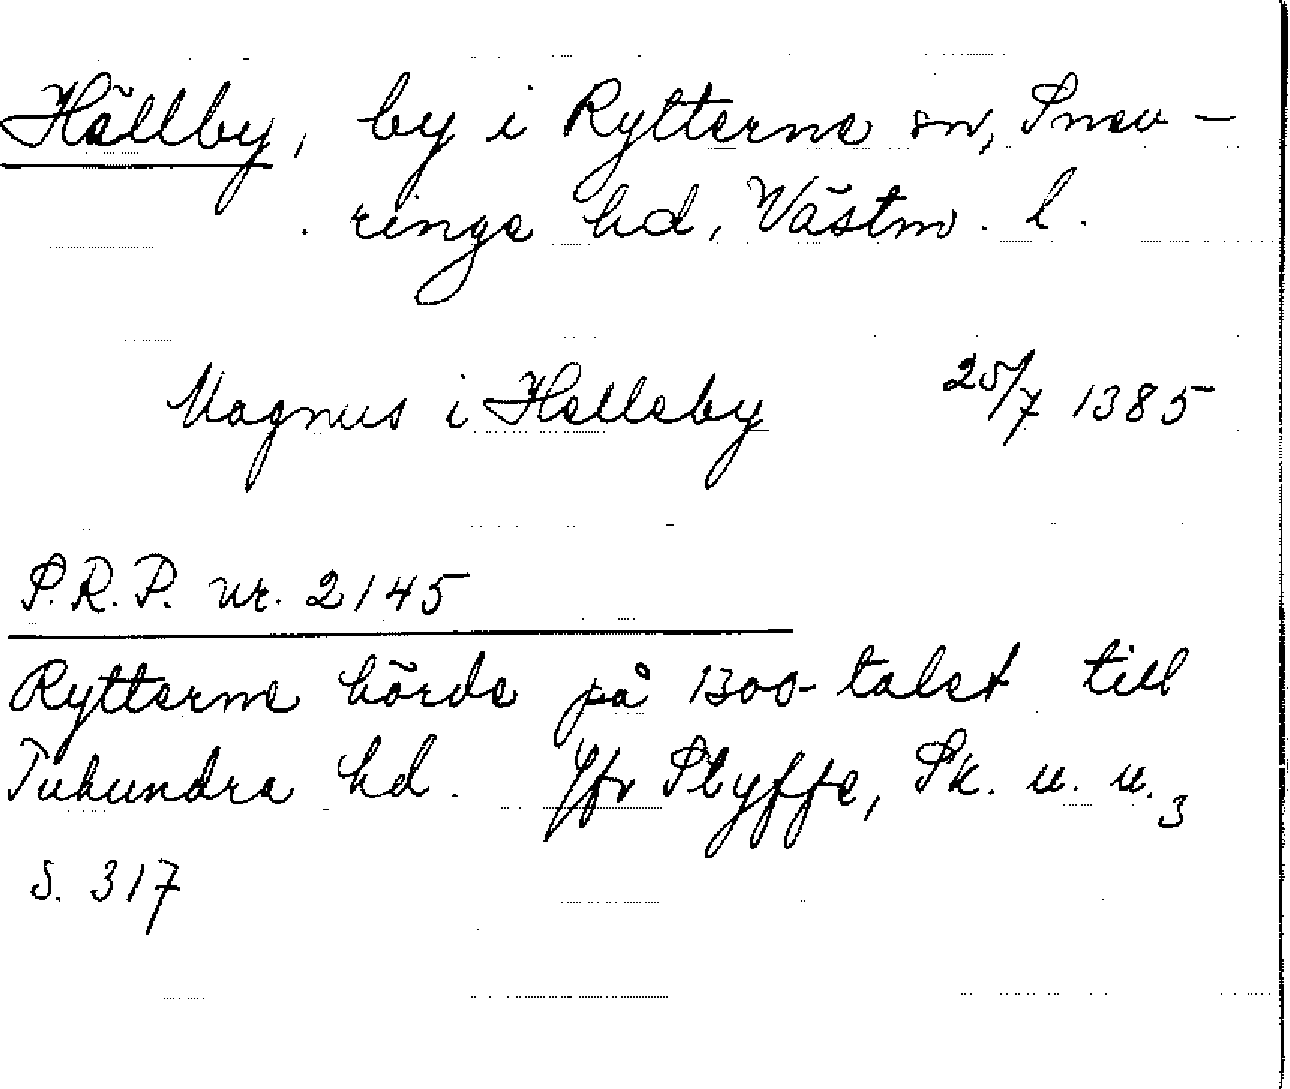 Hällby, by i Rytterne sn, Snev-
ringe hd, Västm. l.
Magnus i Hælleby 25/7 1385
S.R.P. nr. 2145
Rytterne hörde på 1300-talet till
Tuhundra hd. Jfr Styffe, Sk. u. u.3
s. 317